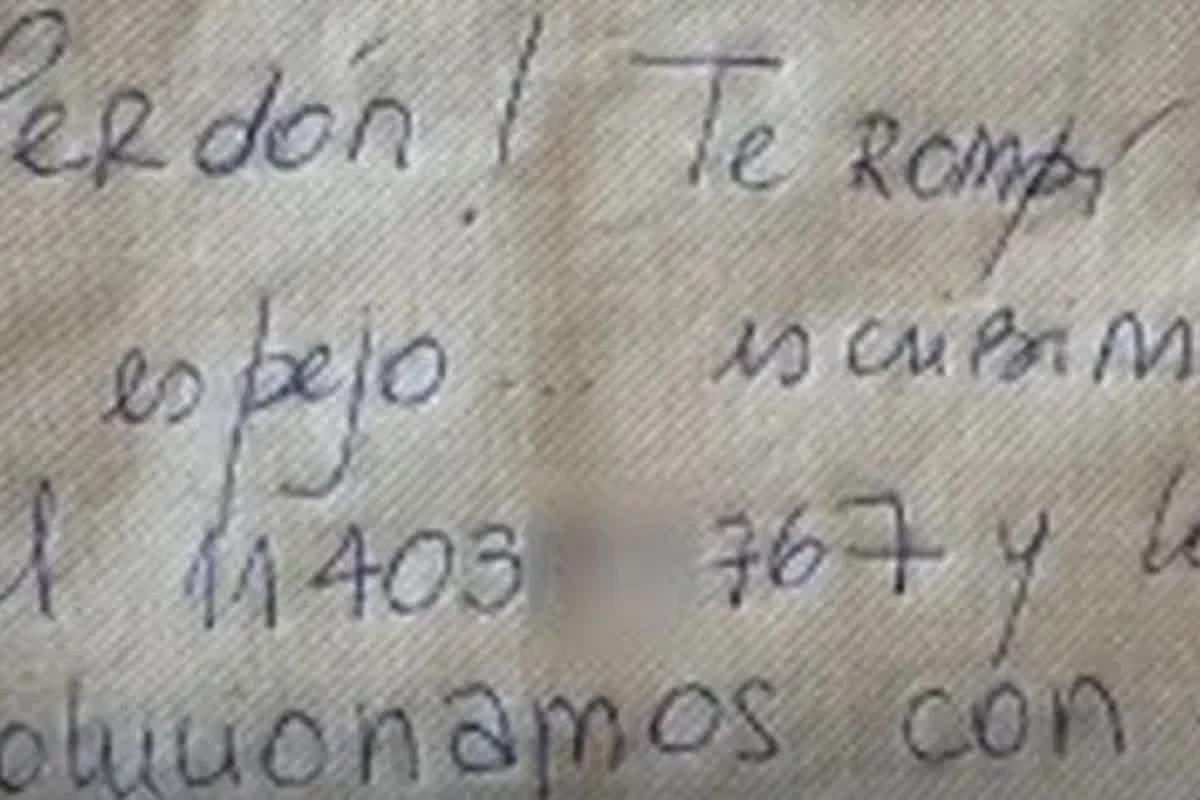 Perdón! Te Rompí
espejo escribim
l 11403 767 y lo
olucionamos con